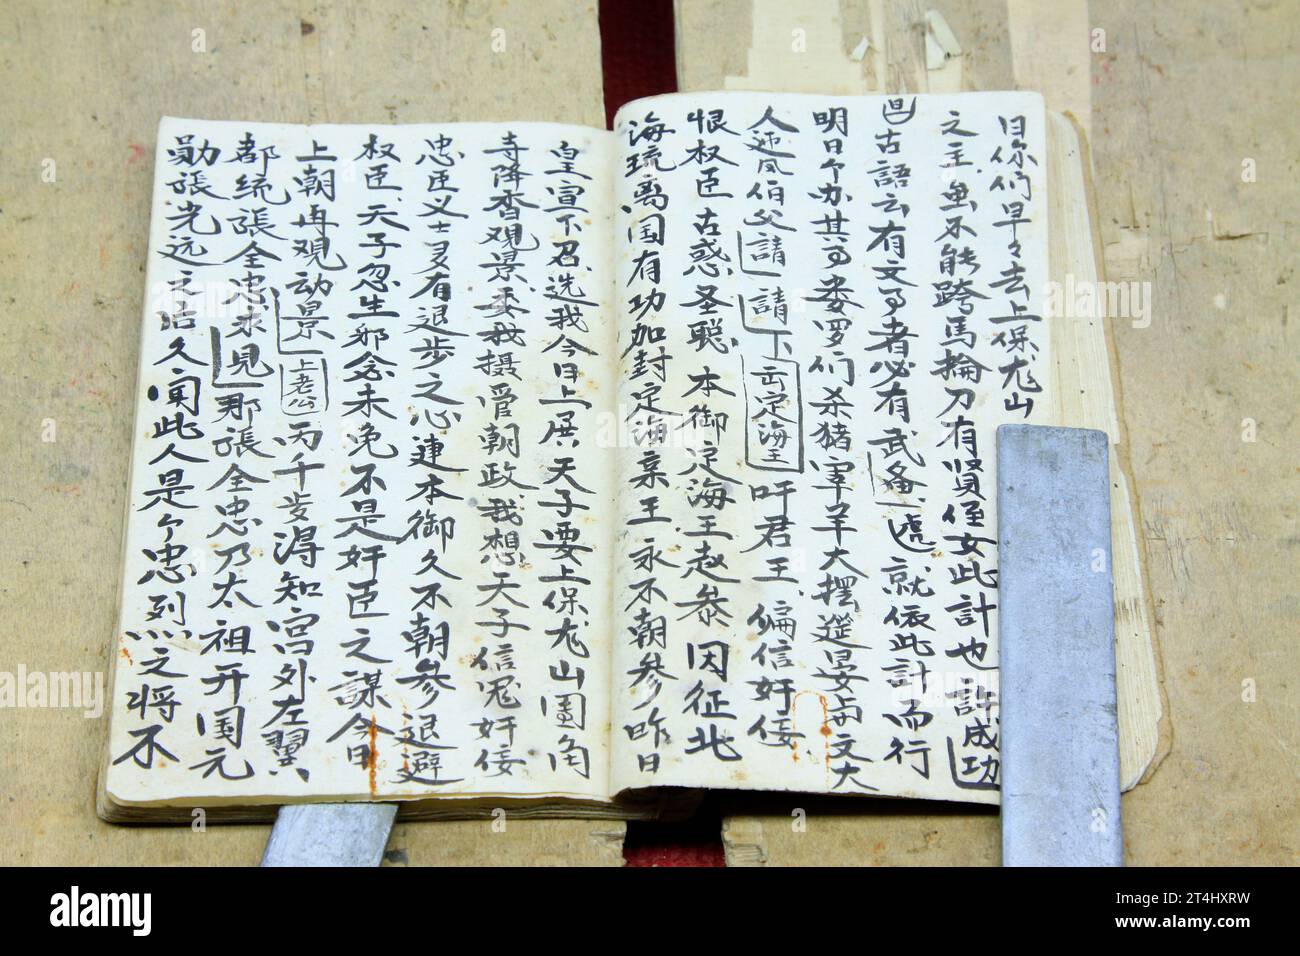 日你们早々去上保龙山
之主.虽不能跨馬抡刀有贤侄女此計也 許成功
古語云有文事者必有武备.遞.就依此計而行
明日个办其事娄罗们杀猪宰羊大摆筵宴 文大
人迎风伯父請 請 下 去定海王 吁君王.偏信奸佞.
恨权臣古惑.圣聪.本御定海王赵参 因征北
海琉离国有功加封定海亲王.永不朝参.昨日
皇宣下召.选我今日上展.天子要上保龙山圍角
寺降香观景.委我摄管朝政.我想天子信寃奸佞
忠臣义士多有退步之心連本御久不朝參退避
权臣.天子忽生邪念未免不是奸臣之謀今日
上朝再观动景 上老公 丙千岁得知宫外左翼
都統張全忠求見 那張全忠乃太祖开国元
勋張光远之后久闻此人是个忠烈之将不
alamy
Image ID: 2T4HXRW
www.alamy.com